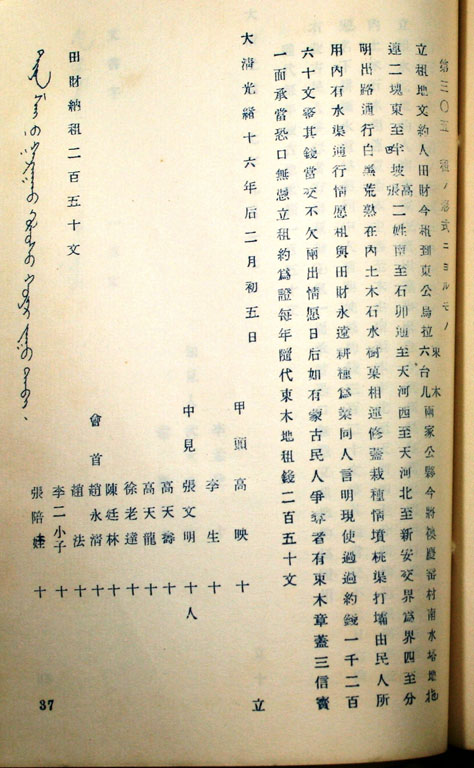 第三〇五 租ノ形式ニヨルモノ
立租地文約人田財今租到東公烏拉東木六台几兩家公縣今將 慶富村南水塔地拖
連二塊東至牢坡高張二姓南至石卯通至天河西至天河北至新安交界為界四至分
明出路通行白黑荒熟在內土木石水樹菓相連修蓋栽種情墳桃渠打壩由民人所
用內石水渠通行情愿租與田財永遠耕種為業同人言明現使過過約錢一千二百
六十文整其錢當交不欠兩出情愿日后如有蒙古民人爭奪者有東木章蓋三信賓
一面承當恐口無憑立租約為證每年隨代東木地租錢二百五十文
大淸光緒十六年后二月初五日 立
甲頭 高映 十
李生 十
中見 張文明 十 人
高天壽 十
高天龍 十
徐老達 十
陳廷林 十
會首 趙永淸 十
趙法 十
李二小子 十
張陪娃 十
田財納租二百五十文
37